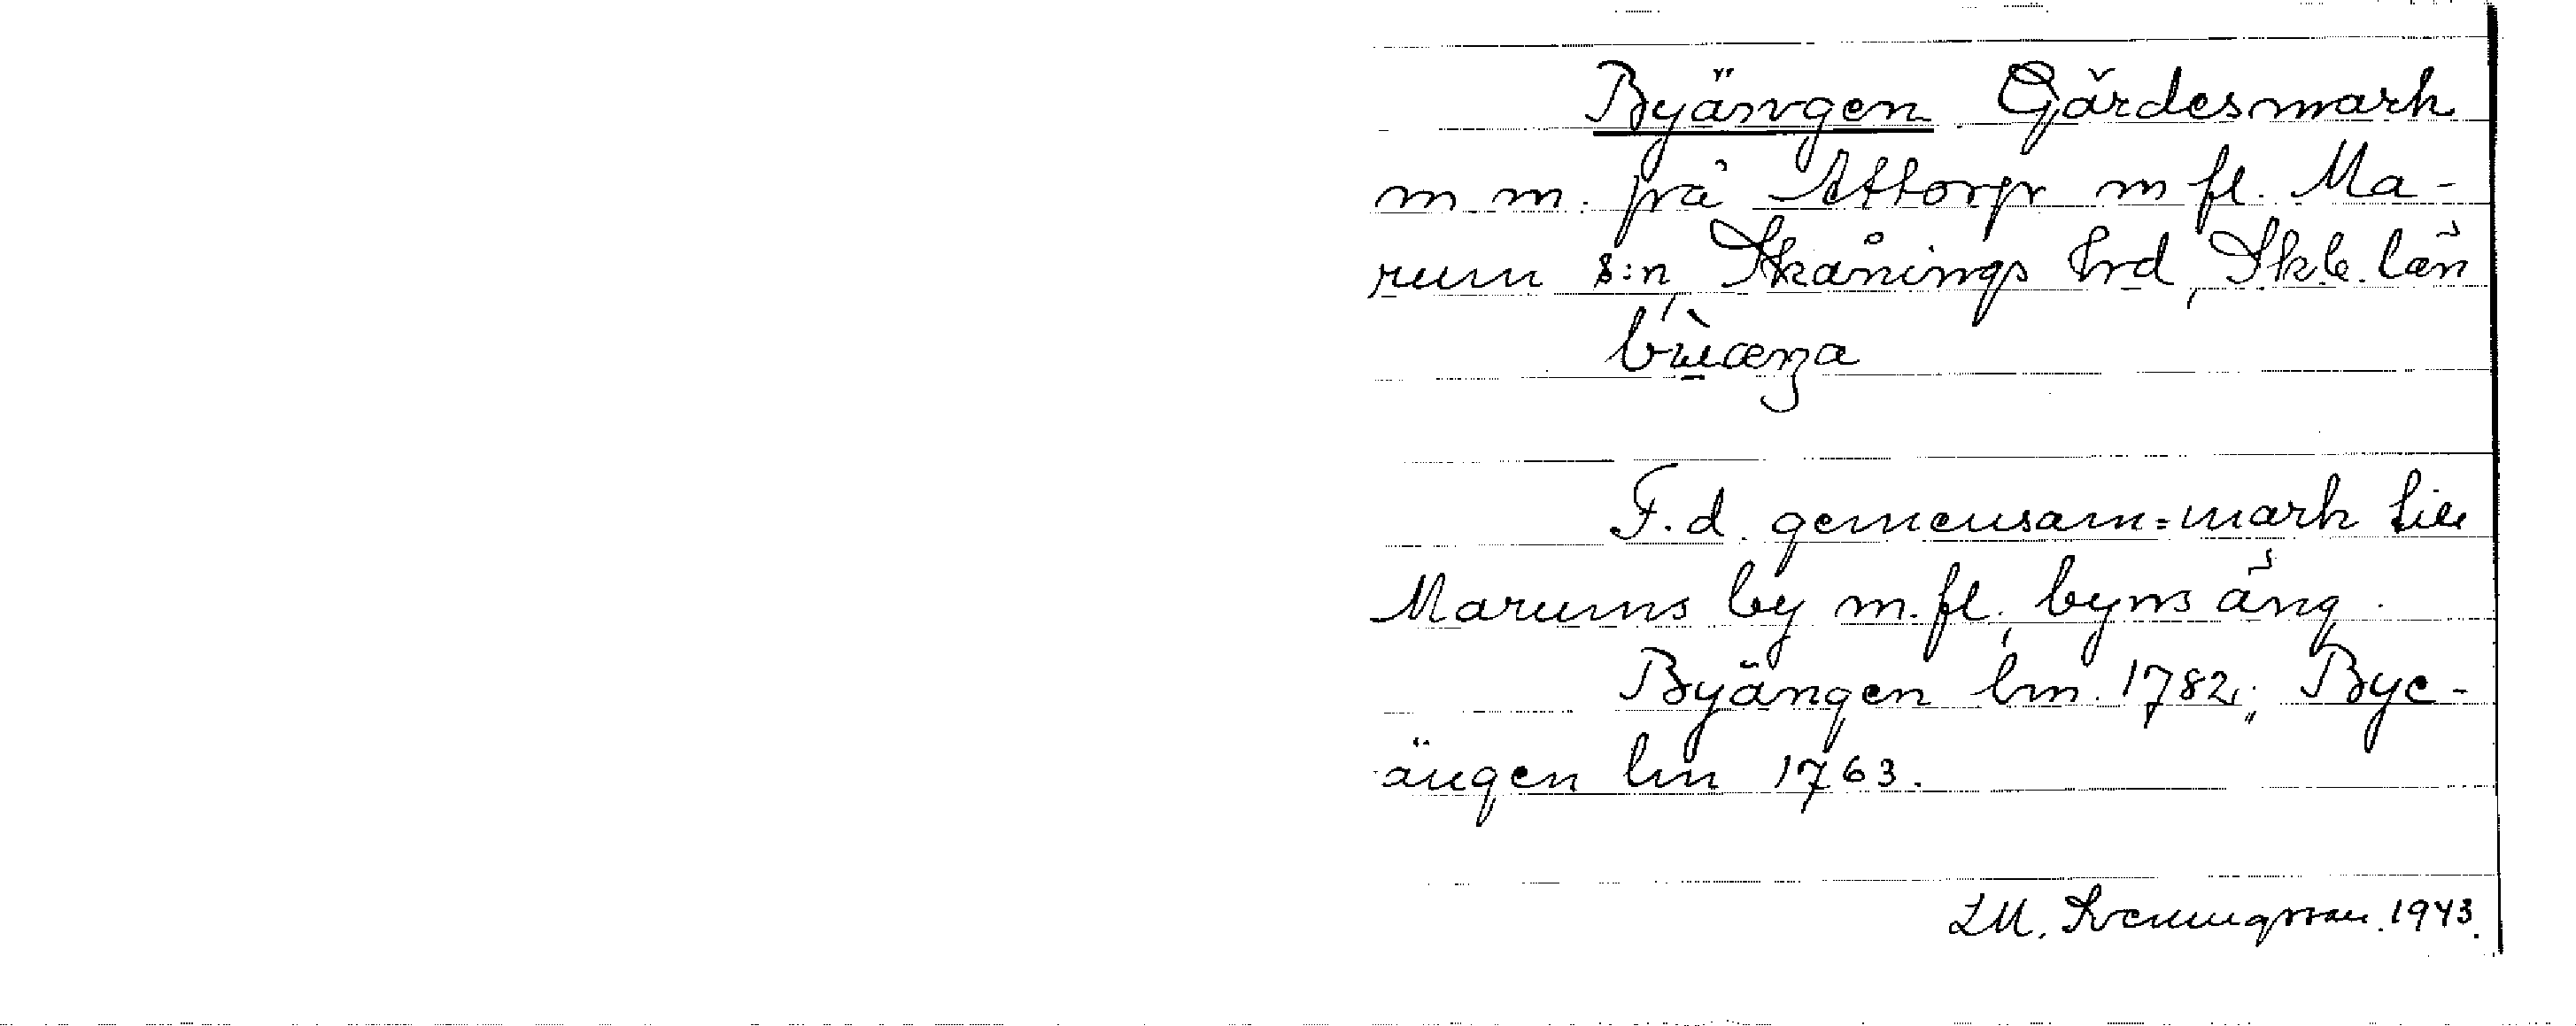 Byängen. Gärdesmark
m m. på Attorp m fl. Ma-
rum s:n, Skånings hrd, Skb. län

F.d. gemensam=mark till
Marums by m. fl., byns äng.
Byängen lm. 1782; Bye-
ängen lm 1763.
LM. Svenungsson. 1943.